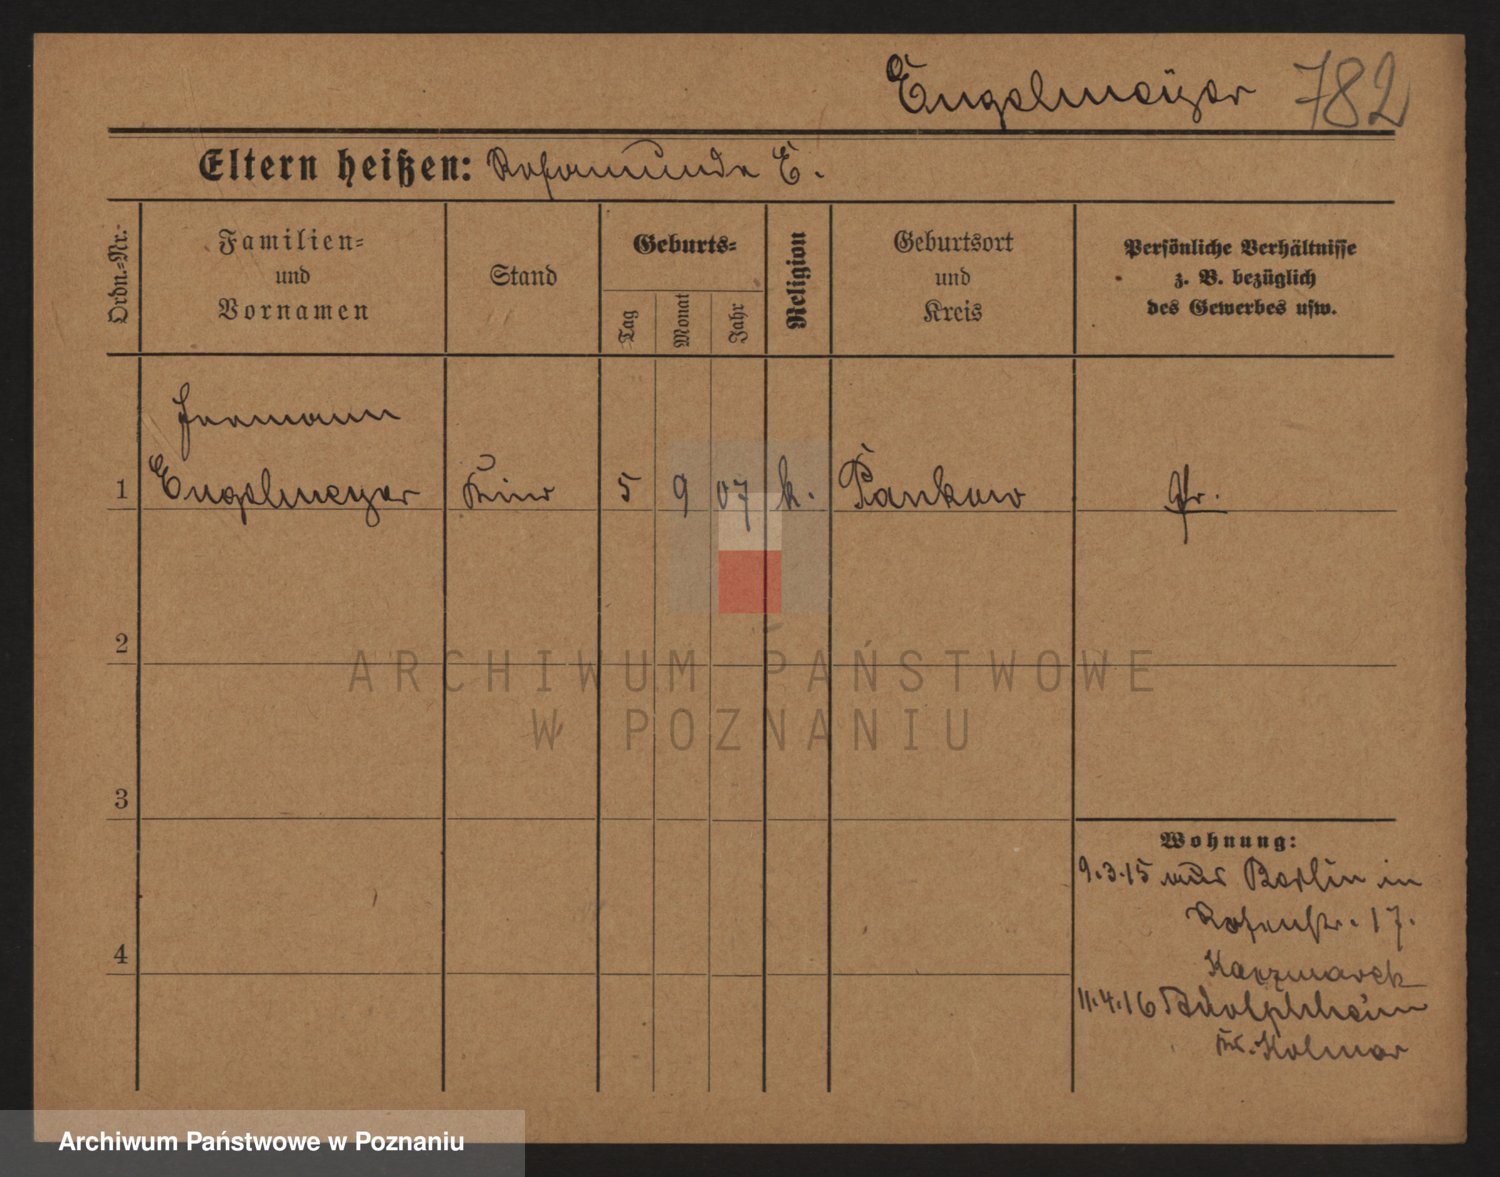 Engelmeÿer 782
Eltern heißen: Rosamunde E.
Ordn.=Nr.
Familien=
und
Vornamen
Stand
Geburts=
Tag
Monat
Jahr
Religion
Geburtsort
und
Kreis
Persönliche Verhältnisse
z. B. bezüglich
des Gewerbes usw.
Hermann
1 Engelmeyer Kind 5 9 07 k. Pankow Pr.
2
ARCHIWUM PAŃSTWOWE
W POZNANIU
3
Wohnung:
9.3.15 aus Berlin in
Rosenstr. 17.
Kaczmarek
4
11.4.16 Adolphheim
Kr. Kolmar
Archiwum Państwowe w Poznaniu